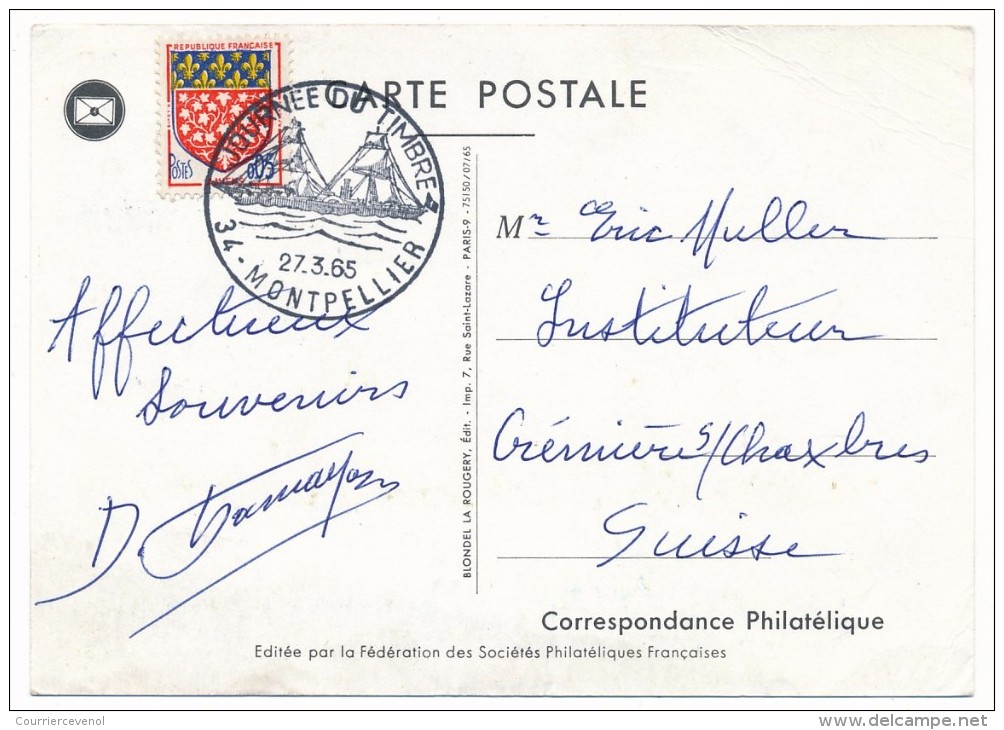 REPUBLIQUE FRANÇAISE
POSTES
0,05
CARTE POSTALE
JOURNEE DU TIMBRE
27.3.65
34 - MONTPELLIER
Affectueux
Souvenirs
D.
BLONDEL LA ROUGERY, Édit. - Imp. 7, Rue Saint-Lazare - PARIS-9 - 75150/07/65
Mr Eric Muller
Instituteur
Crémières/Chexbres
Suisse
Correspondance Philatélique
Editée par la Fédération des Sociétés Philatéliques Françaises
Courriercevenol
www.delcampe.net